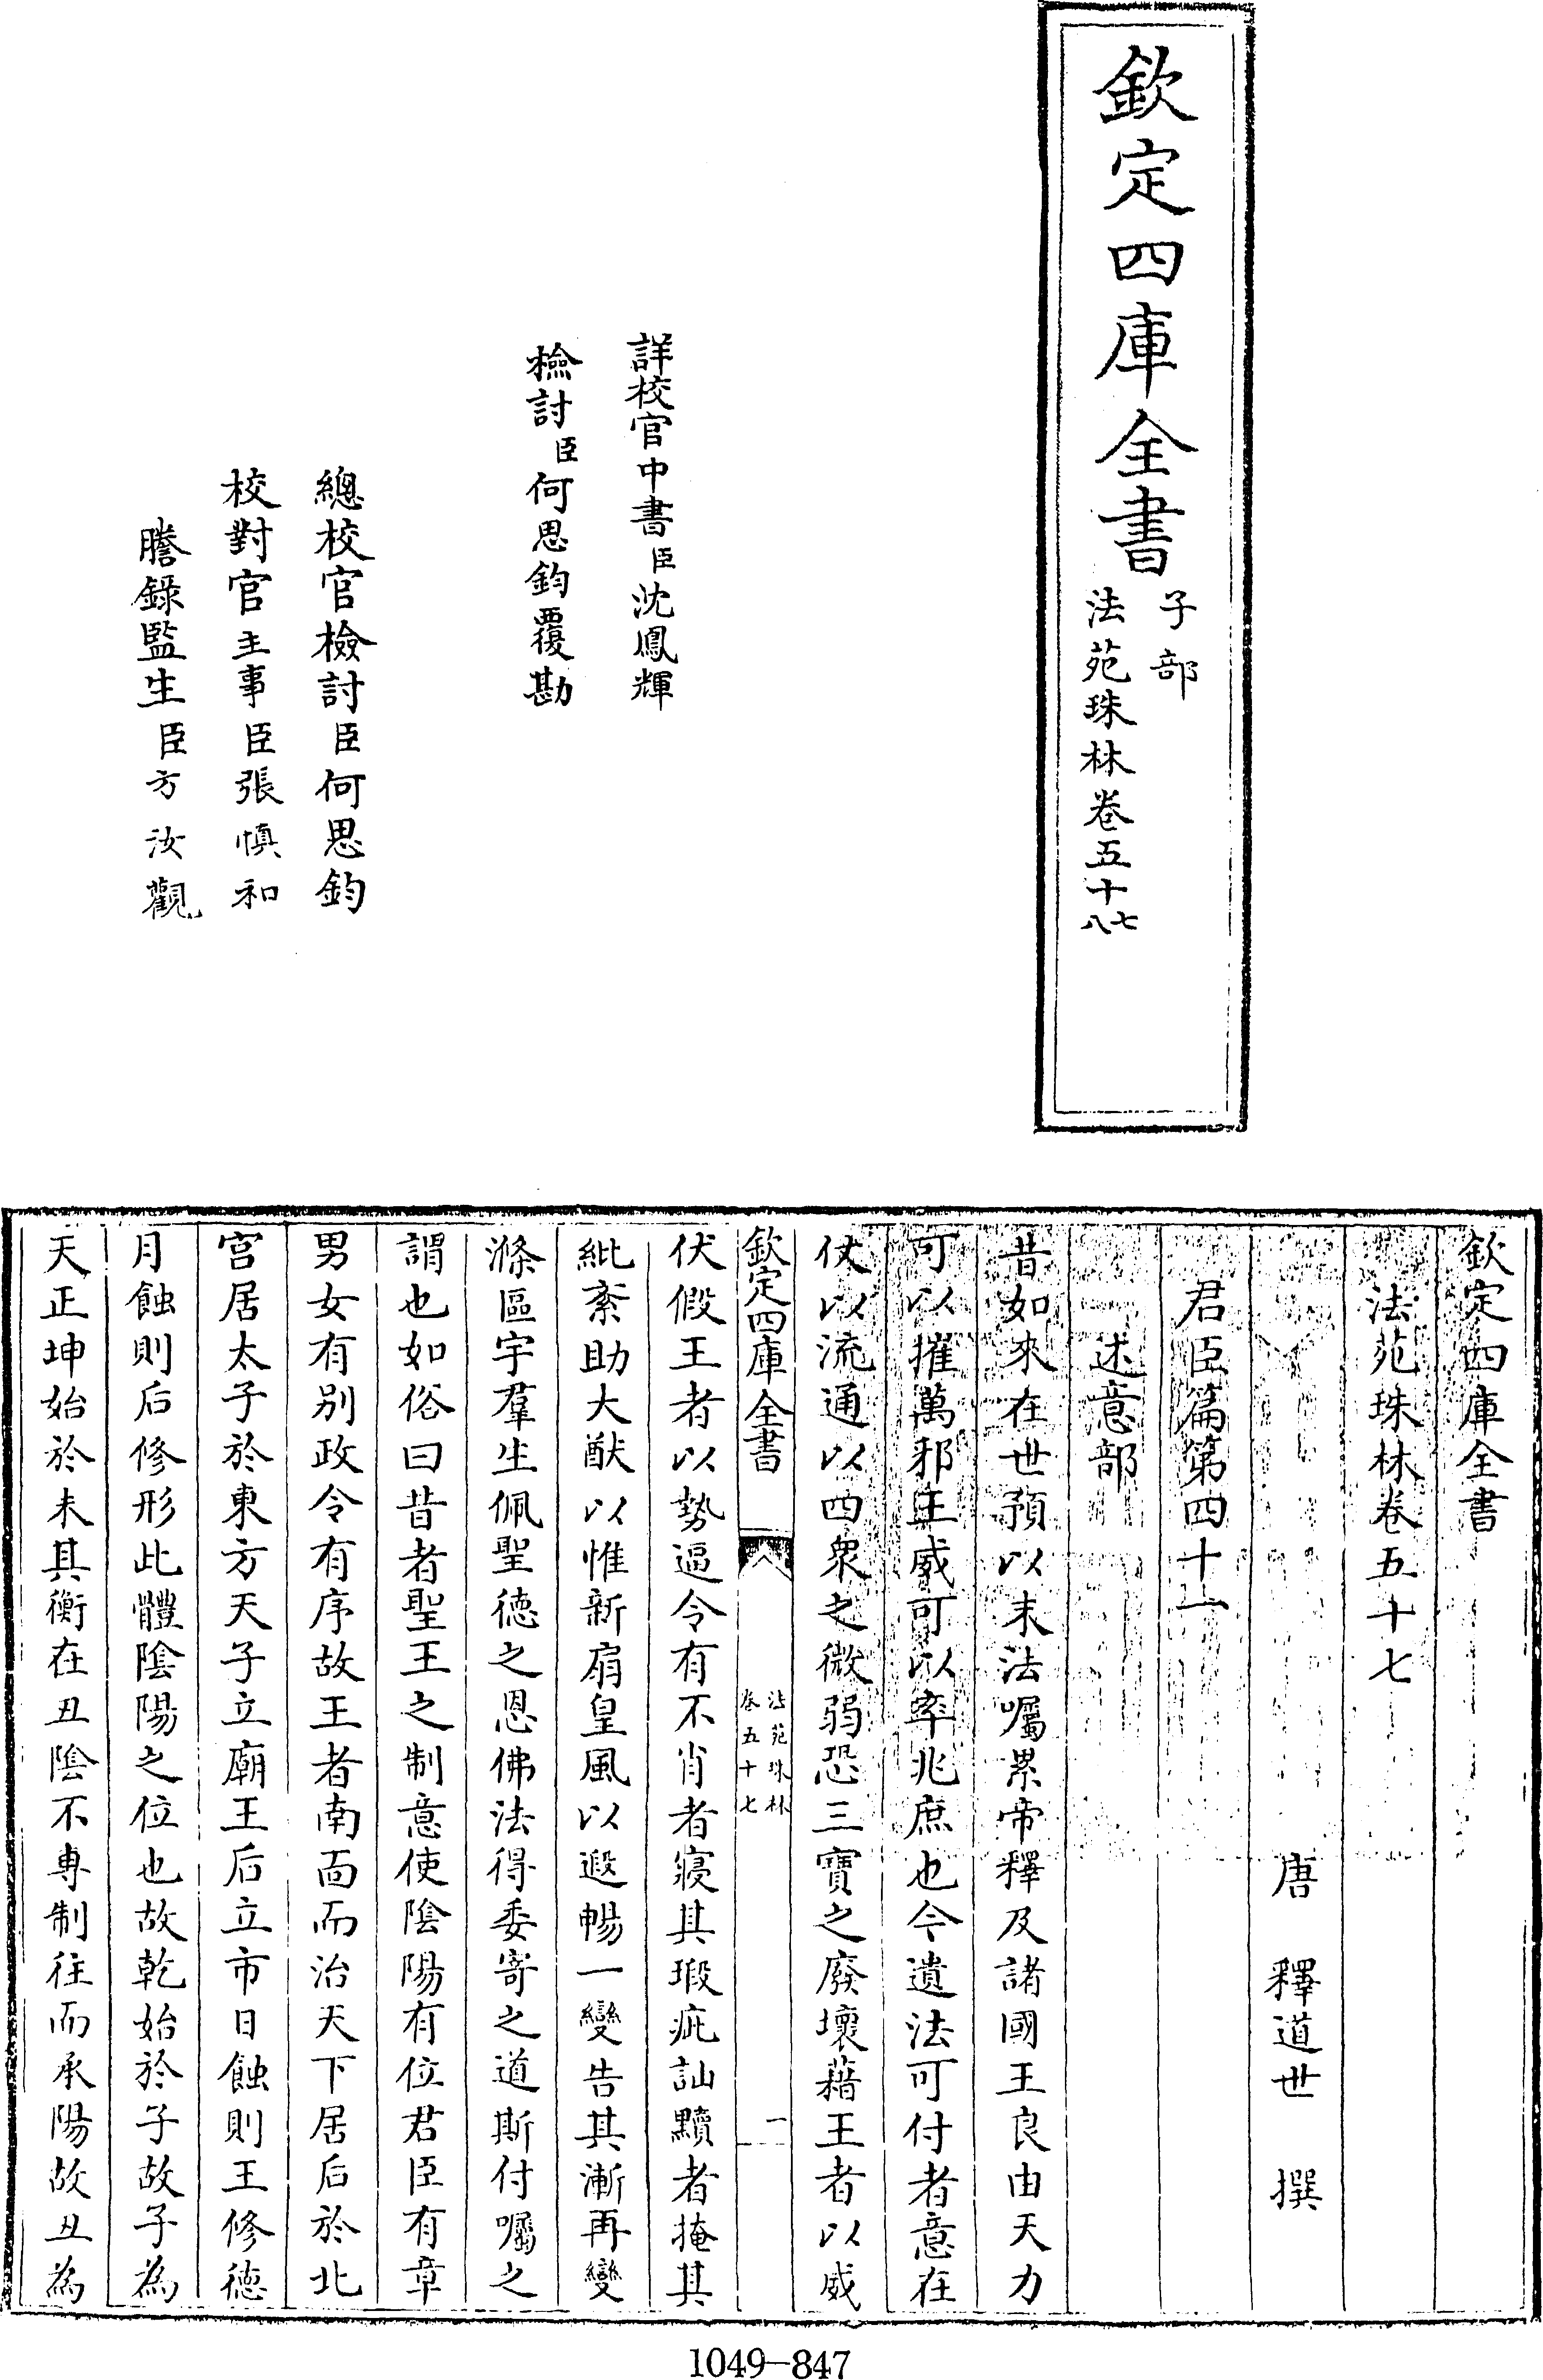 欽定四庫全書
子部
法苑珠林卷五十七
八
詳校官中書臣沈鳳輝
檢討臣何思鈞覆勘
總校官檢討臣何思鈞
校對官主事臣張慎和
謄錄監生臣方汝觀
欽定四庫全書
法苑珠林卷五十七
唐 釋道世 撰
君臣篇第四十一
述意部
昔如來在世預以末法囑累帝釋及諸國王良由天力
可以摧萬邪王威可以率兆庶也今遺法可付者意在
仗以流通以四衆之微弱恐三寶之廢壞藉王者以威
欽定四庫全書
法苑珠林
卷五十七
一
伏假王者以勢逼令有不肖者寢其瑕疵訕黷者掩其
紕紊助大猷以惟新扇皇風以遐暢一變告其漸再變
滌區宇羣生佩聖德之恩佛法得委寄之道斯付囑之
謂也如俗曰昔者聖王之制意使陰陽有位君臣有章
男女有别政令有序故王者南面而治天下居后於北
宫居太子於東方天子立廟王后立市日蝕則王修德
月蝕則后修形此體陰陽之位也故乾始於子故子為
天正坤始於未其衡在丑陰不専制往而承陽故丑為
1049-847